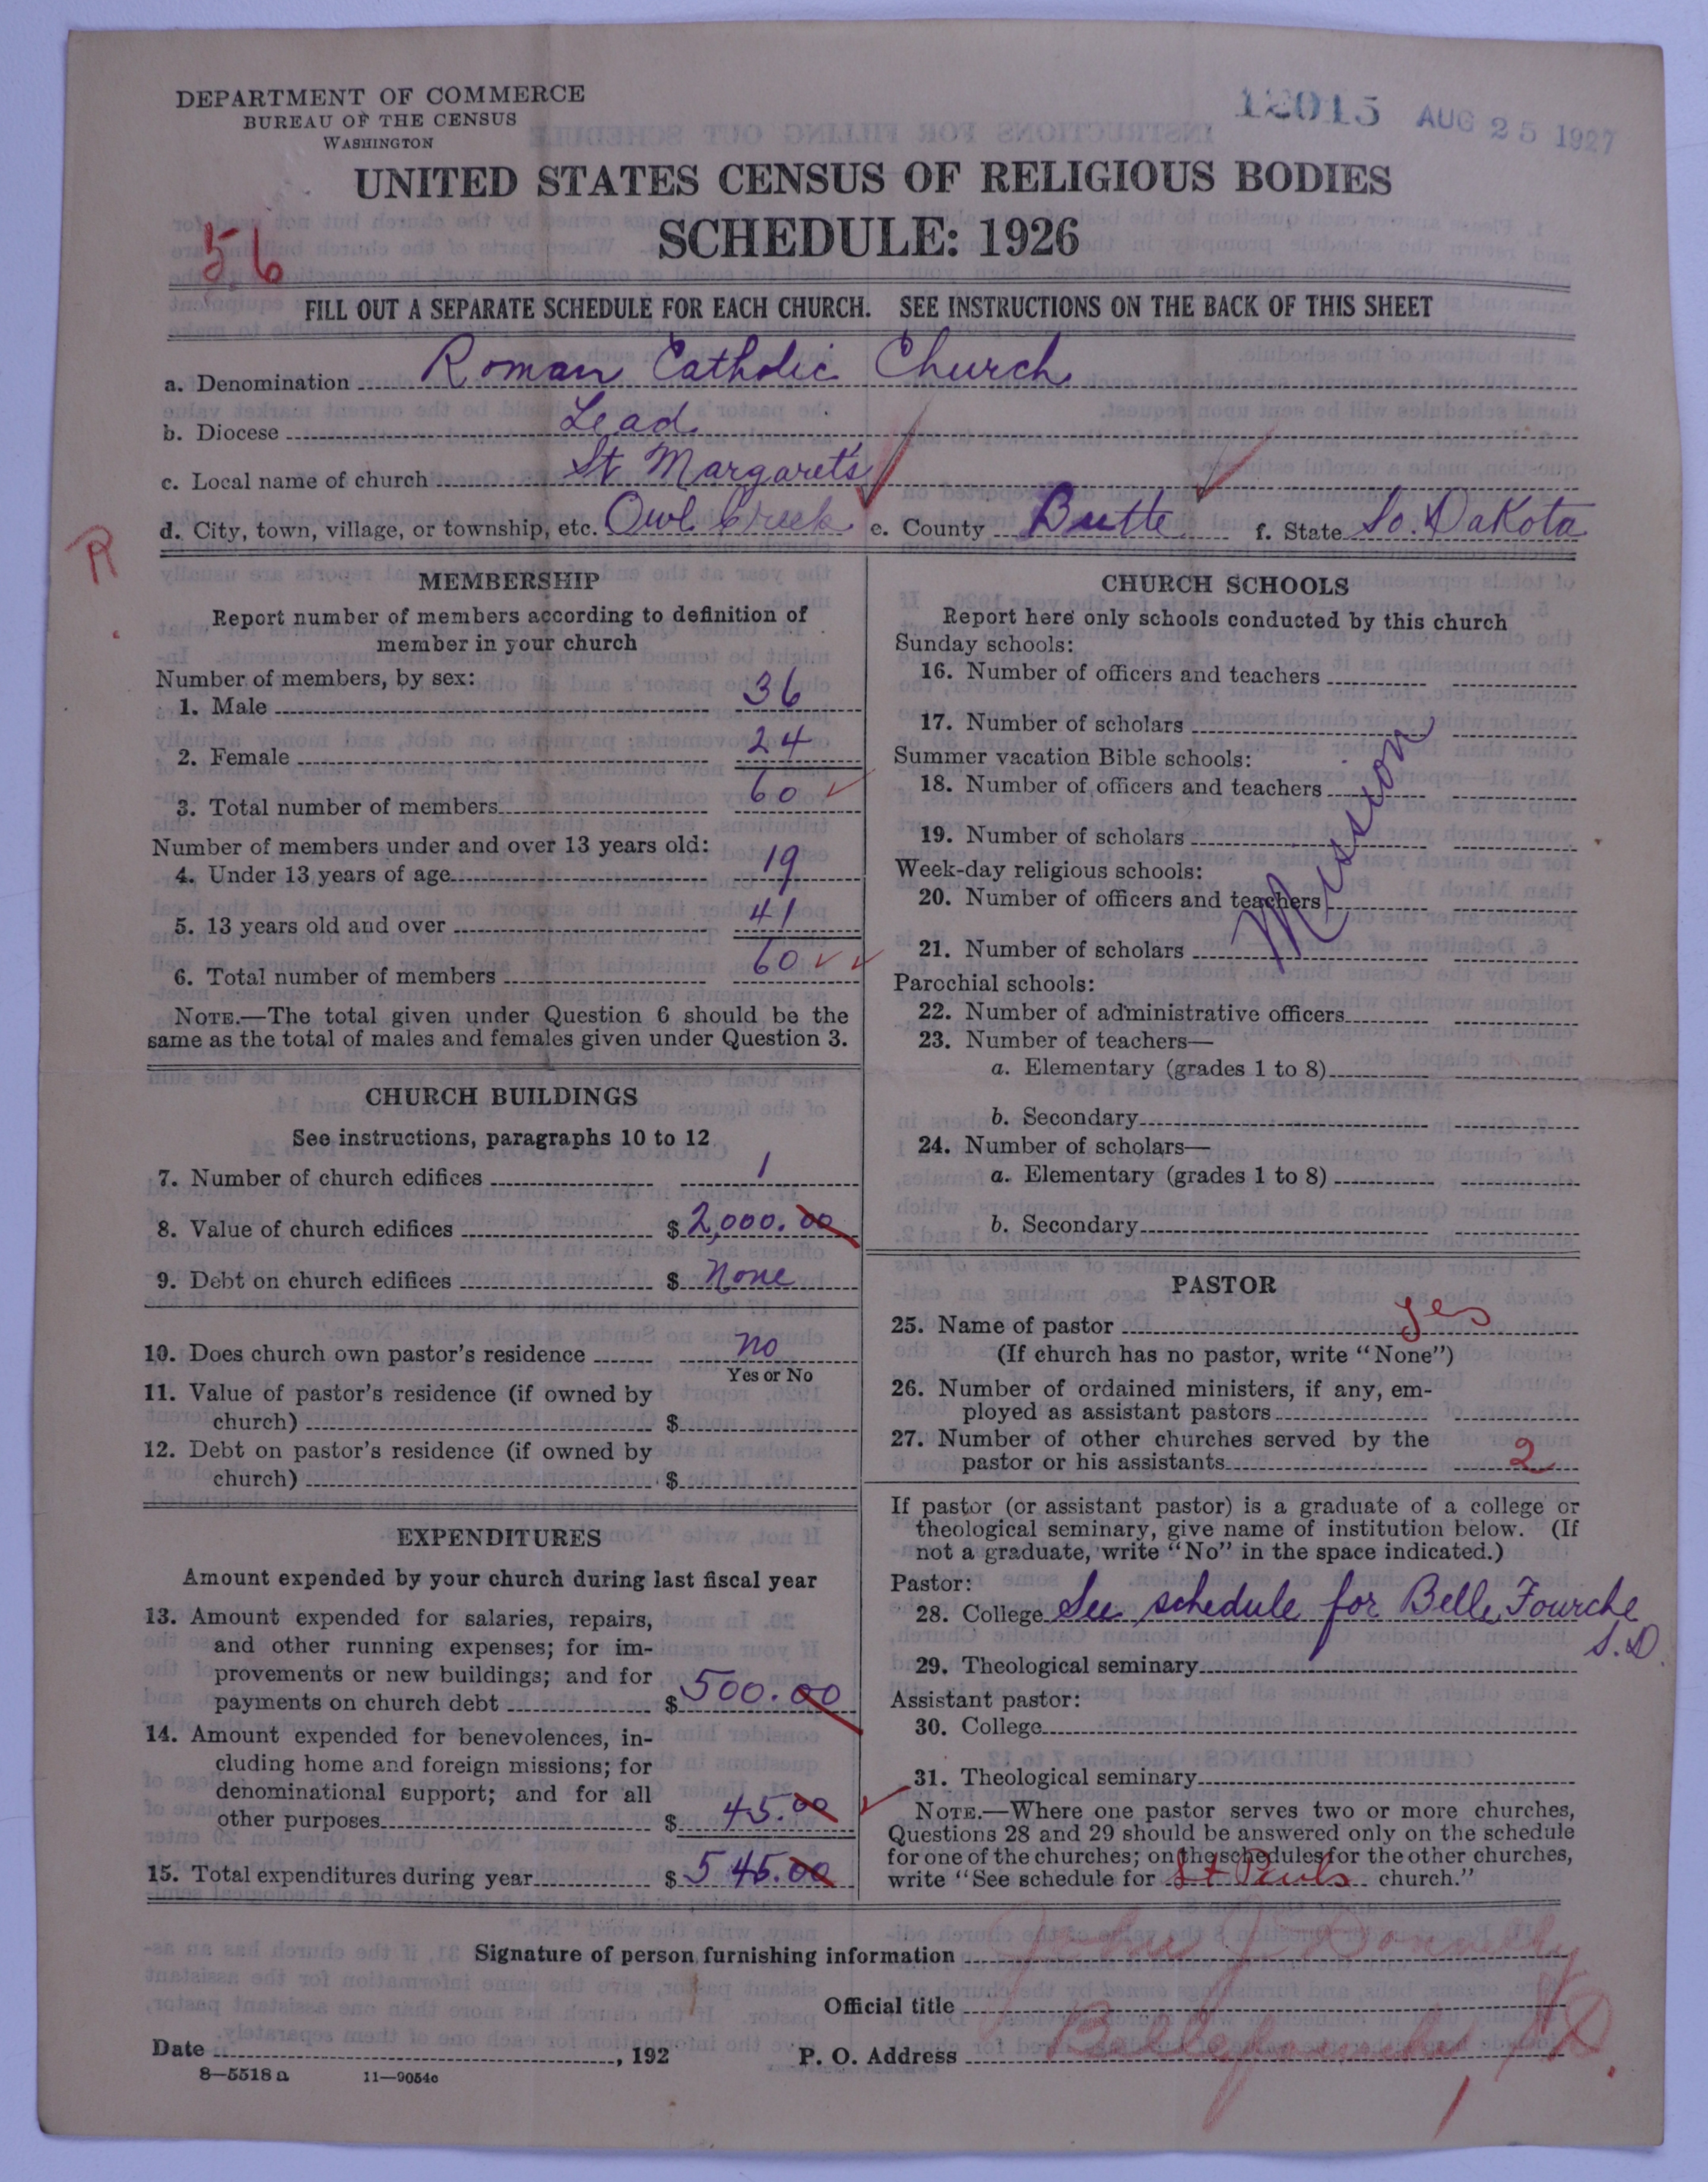 DEPARTMENT OF COMMERCE
BUREAU OF THE CENSUS
WASHINGTON
12015 AUG 25 1927
UNITED STATES CENSUS OF RELIGIOUS BODIES
SCHEDULE: 1926
56
FILL OUT A SEPARATE SCHEDULE FOR EACH CHURCH. SEE INSTRUCTIONS ON THE BACK OF THIS SHEET
a. Denomination Roman Catholic Church
b. Diocese Lead
c. Local name of church St Margaret's
d. City, town, village, or township, etc. Owl Creek e. County Butte f. State So. Dakota
R
MEMBERSHIP
Report number of members according to definition of
member in your church
Number of members, by sex:
1. Male 36
2. Female 24
3. Total number of members 60
Number of members under and over 13 years old:
4. Under 13 years of age 19
5. 13 years old and over 41
6. Total number of members 60
NOTE.—The total given under Question 6 should be the
same as the total of males and females given under Question 3.
CHURCH BUILDINGS
See instructions, paragraphs 10 to 12
7. Number of church edifices 1
8. Value of church edifices $ 2,000.00
9. Debt on church edifices $ None
10. Does church own pastor's residence No
Yes or No
11. Value of pastor's residence (if owned by
church) $
12. Debt on pastor's residence (if owned by
church) $
EXPENDITURES
Amount expended by your church during last fiscal year
13. Amount expended for salaries, repairs,
and other running expenses; for im-
provements or new buildings; and for
payments on church debt $ 500.00
14. Amount expended for benevolences, in-
cluding home and foreign missions; for
denominational support; and for all
other purposes $ 45.00
15. Total expenditures during year $ 545.00
CHURCH SCHOOLS
Report here only schools conducted by this church
Sunday schools:
16. Number of officers and teachers
17. Number of scholars
Summer vacation Bible schools:
18. Number of officers and teachers
19. Number of scholars
Week-day religious schools:
20. Number of officers and teachers
21. Number of scholars
Mission
Parochial schools:
22. Number of administrative officers
23. Number of teachers—
a. Elementary (grades 1 to 8)
b. Secondary
24. Number of scholars—
a. Elementary (grades 1 to 8)
b. Secondary
PASTOR
25. Name of pastor yes
(If church has no pastor, write "None")
26. Number of ordained ministers, if any, em-
ployed as assistant pastors
27. Number of other churches served by the
pastor or his assistants 2
If pastor (or assistant pastor) is a graduate of a college or
theological seminary, give name of institution below. (If
not a graduate, write "No" in the space indicated.)
Pastor:
28. College See schedule for Belle Fourche
S.D.
29. Theological seminary
Assistant pastor:
30. College
31. Theological seminary
NOTE.—Where one pastor serves two or more churches,
Questions 28 and 29 should be answered only on the schedule
for one of the churches; on the schedules for the other churches,
write "See schedule for St Pauls church."
Signature of person furnishing information John J Donnelly
Official title
Date , 192
P. O. Address Bellefourche S.D.
8—5518 a 11—9054c